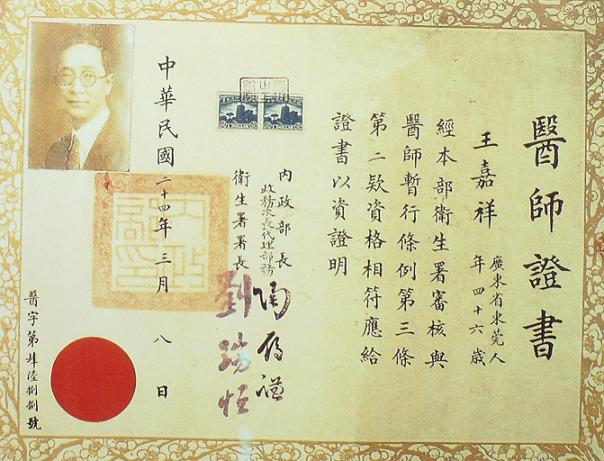 醫師證書
王嘉祥
廣東省東莞人
年四十六歲
經本部衛生署審核與
醫師暫行條例第三條
第二欵資格相符應給
證書以資證明
內政部長
政務次長代理部務
陶履謙
衛生署署長
劉瑞恒
中華民國二十四年三月八日
醫字第肆陸捌捌號